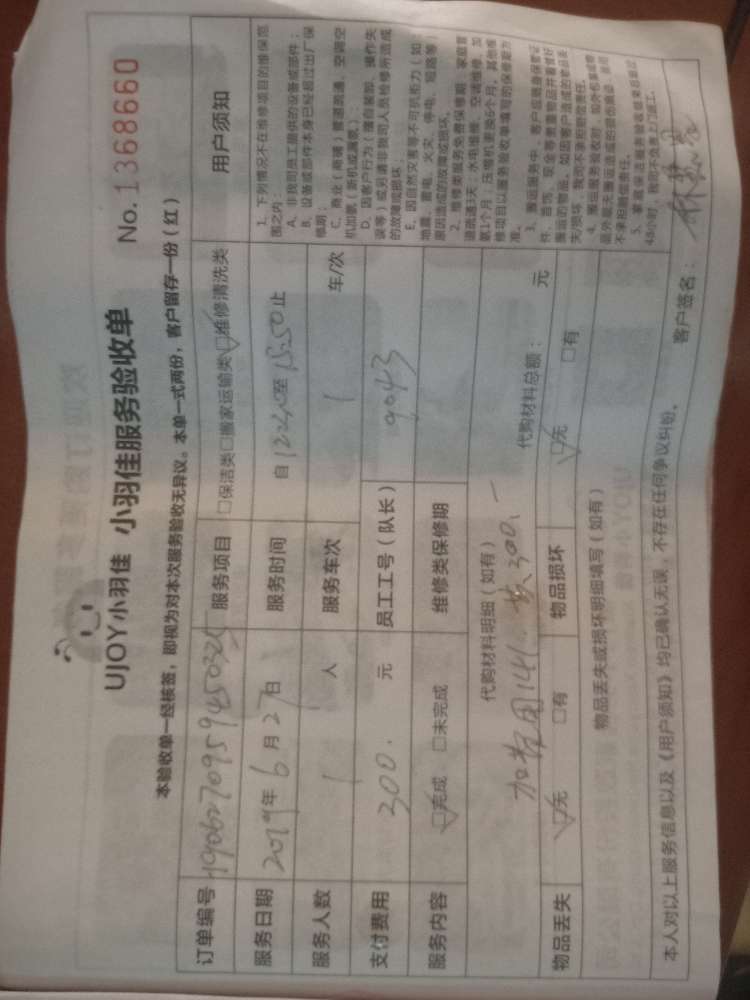 UJOY小羽佳 小羽佳服务验收单
No.1368660
本验收单一经核签，即视为对本次服务验收无异议。本单一式两份，客户留存一份（红）
订单编号 服务项目 □保洁类□搬家运输类☑维修清洗类
服务日期 2019年6月27日 服务时间 自12:40至15:50止
服务人数 1人 服务车次 1 车/次
支付费用 300. 元 员工工号（队长） 9043
服务内容 ☑完成 □未完成 维修类保修期
代购材料明细（如有） 代购材料总额： 元
物品丢失 ☑无 □有 物品损坏 ☑无 □有
物品丢失或损坏明细填写（如有）
本人对以上服务信息以及《用户须知》均已确认无误，不存在任何争议纠纷。 客户签名：
用户须知
1、下列情况不在维修项目的维保范
围之内：
A、非我司员工提供的设备或部件；
B、设备或部件本身已经超过出厂保
修期；
C、商业（商铺）管道疏通、空调空
机加氨（新机或漏氨）；
D、因客户行为（擅自装卸、操作失
误等）或另请非我司人员检修所造成
的故障或损坏；
E、因自然灾害等不可抗拒力（如：
地震、雷电、火灾、停电、短路等）
原因造成的故障或损坏。
2、维修类服务免费保修期：家庭管
道疏通3天；水电维修、空调维修、加
氨1个月；压缩机更换6个月，其他维
修项目以服务验收单填写的保修期为
准。
3、搬运服务中，客户应随身保管证
件、首饰、现金等贵重物品并看管好
搬运的物品。如因客户造成的物品丢
失/损坏，我司不承担赔偿责任。
不承担赔偿责任。
48小时，我司不负责上门返工。